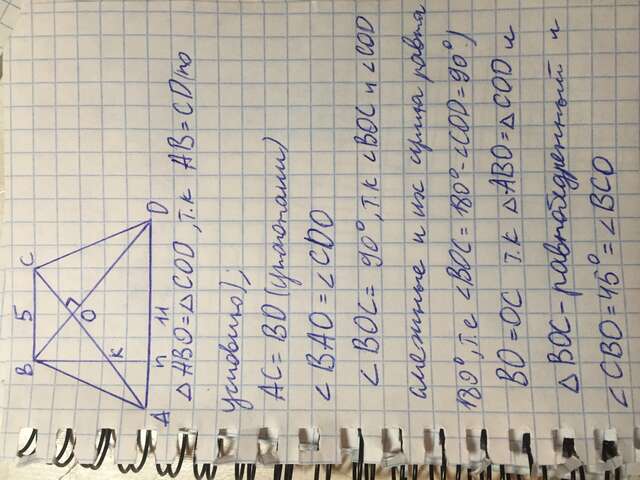 B 5 C
O
K
A п 11 D
△ABO = △COD, т.к AB = CD (по
условию);
AC = BD (
∠BAO = ∠CDO
∠BOC = 90°, т.к ∠BOC и ∠COD
смежные и их сумма равна
180°, т.е ∠BOC = 180° - ∠COD = 90°)
BO = OC т.к △ABO = △COD и
△BOC - равнобедренный и
∠CBO = 45° = ∠BCO